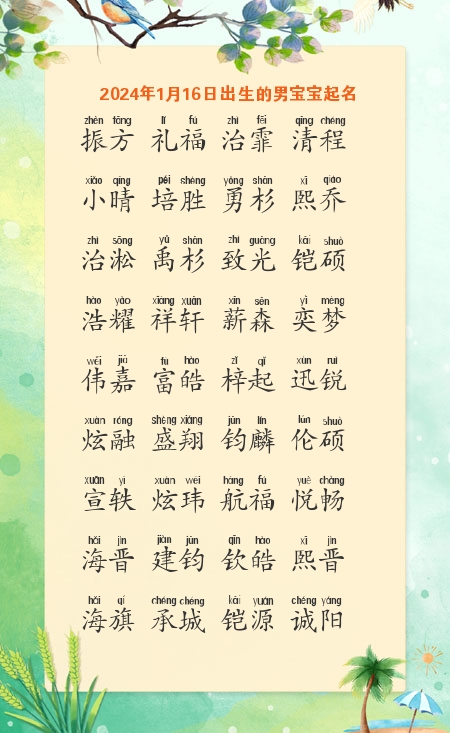 2024年1月16日出生的男宝宝起名
zhèn fāng lǐ fú zhì fēi qīng chéng
振方 礼福 治霏 清程
xiǎo qíng péi shèng yǒng shān xī qiáo
小晴 培胜 勇杉 熙乔
zhì sōng yǔ shān zhì guāng kǎi shuò
治淞 禹杉 致光 铠硕
hào yào xiáng xuān xīn sēn yì mèng
浩耀 祥轩 薪森 奕梦
wěi jiā fù hào zǐ qǐ xùn ruì
伟嘉 富皓 梓起 迅锐
xuàn róng shèng xiáng jūn lín lún shuò
炫融 盛翔 钧麟 伦硕
xuān yì xuàn wěi háng fú yuè chàng
宣轶 炫玮 航福 悦畅
hǎi jìn jiàn jūn qīn hào xī jìn
海晋 建钧 钦皓 熙晋
hǎi qí chéng chéng kǎi yuán chéng yáng
海旗 承城 铠源 诚阳